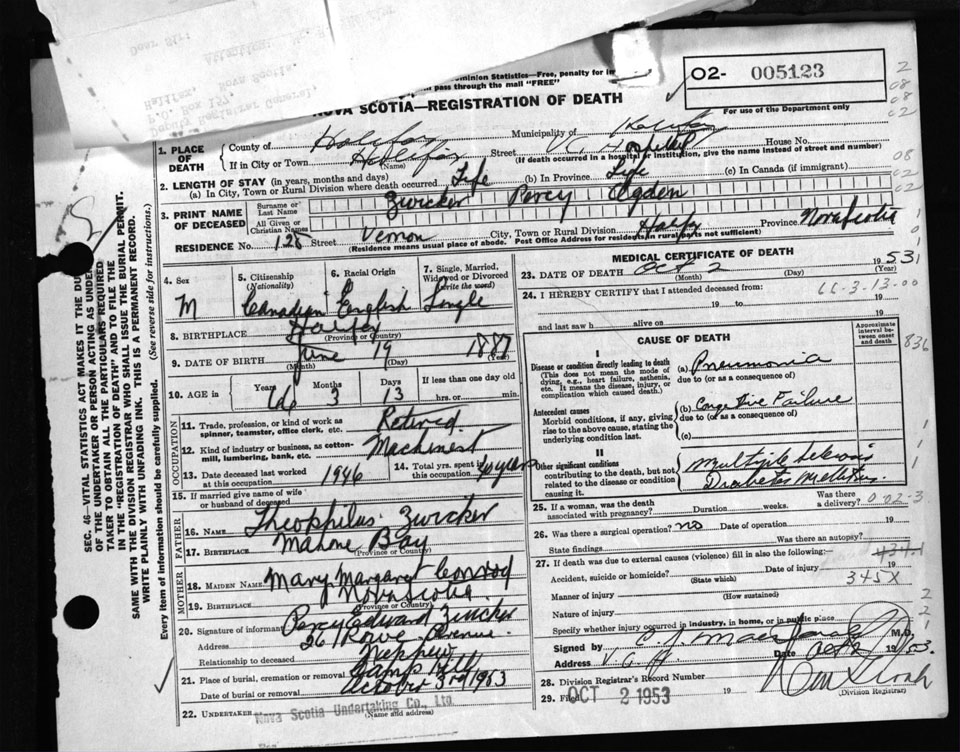 Dear Sir:
Halifax, Nova Scotia.
P. O. Box 157,
Deputy Registrar General,
Dominion Statistics—Free, penalty for
pass through the mail "FREE"
NOVA SCOTIA—REGISTRATION OF DEATH
O2- 005123
For use of the Department only
1. PLACE OF DEATH
County of Halifax Municipality of Halifax
If in City or Town Halifax (Name) Street V. Hospital House No.
(If death occurred in a hospital or institution, give the name instead of street and number)
2. LENGTH OF STAY (in years, months and days)
(a) In City, Town or Rural Division where death occurred Life (b) In Province Life (c) In Canada (if immigrant)
3. PRINT NAME OF DECEASED
Surname or Last Name
All Given or Christian Names
Zwicker Percy Ogden
RESIDENCE No. 128 Street Vernon City, Town or Rural Division Halifax Province Nova Scotia
(Residence means usual place of abode. Post Office Address for residents in rural parts not sufficient)
4. Sex M
5. Citizenship (Nationality) Canadian
6. Racial Origin English
7. Single, Married, Widowed or Divorced (write the word) Single
8. BIRTHPLACE Halifax (Province or Country)
9. DATE OF BIRTH June (Month) 19 (Day) 1887 (Year)
10. AGE in Years 66 Months 3 Days 13 If less than one day old hrs. or min.
OCCUPATION
11. Trade, profession, or kind of work as spinner, teamster, office clerk, etc. Retired
12. Kind of industry or business, as cotton-mill, lumbering, bank, etc. Machinest
13. Date deceased last worked at this occupation 1946
14. Total yrs. spent in this occupation years
15. If married give name of wife or husband of deceased
FATHER
16. Name Theophilus Zwicker
17. Birthplace Mahone Bay (Province or Country)
MOTHER
18. Maiden Name Mary Margaret Conrod
19. Birthplace Nova Scotia (Province or Country)
20. Signature of informant Percy Edward Zwicker
Address 261 Rowe Avenue
Relationship to deceased Nephew
21. Place of burial, cremation or removal Camp Hill
Date of burial or removal October 3rd 1953
22. Undertaker Nova Scotia Undertaking Co., Ltd.
(Name and address)
MEDICAL CERTIFICATE OF DEATH
23. DATE OF DEATH Oct (Month) 2 (Day) 1953 (Year)
24. I HEREBY CERTIFY that I attended deceased from: 66-3-13-00
19 to 19
and last saw h alive on 19
CAUSE OF DEATH
Approximate interval between onset and death
I
Disease or condition directly leading to death
(This does not mean the mode of dying, e.g., heart failure, asthenia, etc. It means the disease, injury, or complication which caused death.)
(a) Pneumonia
due to (or as a consequence of)
Antecedent causes
Morbid conditions, if any, giving rise to the above cause, stating the underlying condition last.
(b) Congestive Failure
due to (or as a consequence of)
(c)
II
Other significant conditions contributing to the death, but not related to the disease or condition causing it.
Multiple Sclerosis
Diabetes Mellitus
836
25. If a woman, was the death associated with pregnancy? Duration weeks. Was there a delivery?
002-3
26. Was there a surgical operation? no Date of operation 19
State findings Was there an autopsy?
27. If death was due to external causes (violence) fill in also the following:—
434.1
Accident, suicide or homicide? (State which) Date of injury 19
345X
Manner of injury (How sustained)
Nature of injury
Specify whether injury occurred in industry, in home, or in public place
Signed by M.D.
Address V. G. H. Date Oct 2 1953.
28. Division Registrar's Record Number
29. Filed OCT 2 1953 19
(Division Registrar)
SEC. 46—VITAL STATISTICS ACT MAKES IT THE DUTY
OF THE UNDERTAKER OR PERSON ACTING AS UNDER-
TAKER TO OBTAIN ALL THE PARTICULARS REQUIRED
IN THE "REGISTRATION OF DEATH" AND TO FILE THE
SAME WITH THE DIVISION REGISTRAR WHO SHALL ISSUE THE BURIAL PERMIT.
WRITE PLAINLY WITH UNFADING INK. THIS IS A PERMANENT RECORD.
Every item of information should be carefully supplied. (See reverse side for instructions.)